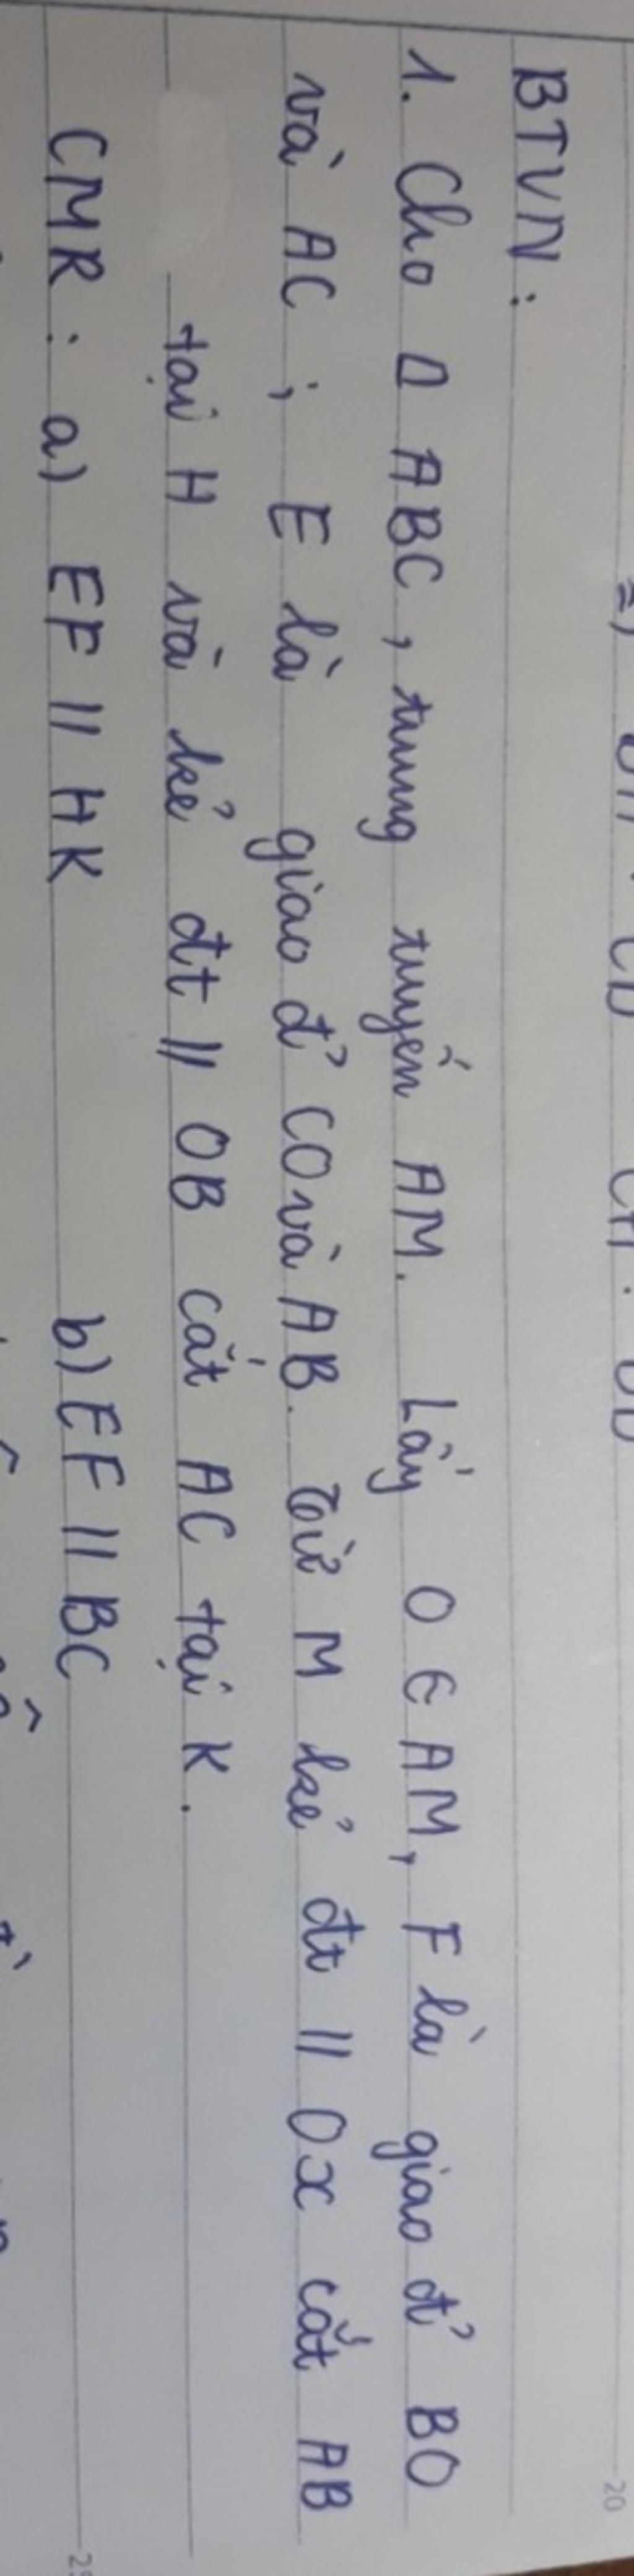 BTVN :
1. Cho Δ ABC, trung tuyến AM. Lấy O ∈ AM, F là giao đ' BO
và AC ; E là giao đ' CO và AB. Từ M kẻ đt // Ox cắt AB
tại H và kẻ đt // OB cắt AC tại K.
CMR : a) EF // HK b) EF // BC
20